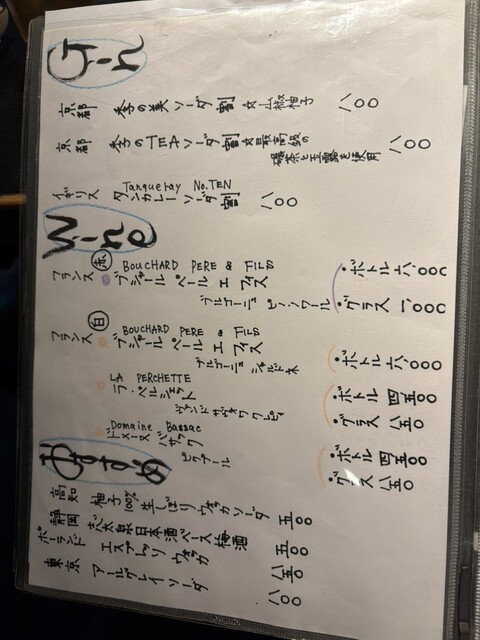 Gin
京都 季の美ソーダ割 ☆山椒柚子 八〇〇
京都 季のTEAソーダ割 ☆最高級の
碾茶と玉露を使用 八〇〇
イギリス Tanqueray No.TEN
タンカレーソーダ割 八〇〇
Wine
赤
フランス BOUCHARD PERE & FILS
ブシャール ペール エ フィス ・ボトル 六、〇〇〇
ブルゴーニュ ピノ・ノワール ・グラス 一、〇〇〇
白
フランス BOUCHARD PERE & FILS
ブシャール ペール エ フィス
ブルゴーニュ シャルドネ ・ボトル 六、〇〇〇
LA PERCHETTE
ラ・ペルシェット ・ボトル 四五〇〇
ヴァンド ・グラス 八五〇
Domaine Bassac
ドメーヌ バサック ・ボトル 四五〇〇
・グラス 八五〇
おすすめ
高知 柚子100%生しぼりウォッカソーダ 五〇〇
静岡 志太泉日本酒ベース梅酒 五〇〇
ポーランド エスプレッソ ウォッカ 八五〇
東京 アールグレイソーダ 八〇〇